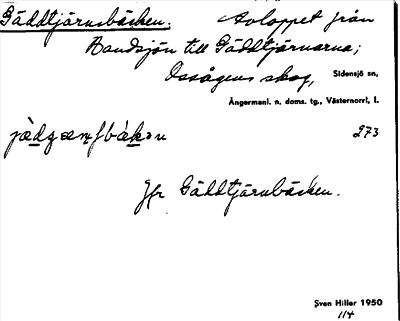 Gäddtjärnsbäcken: Avloppet från
Bandsjön till Gäddtjärnarna;
skog, Sidensjö sn,
Ångermanl. n. doms. tg., Västernorrl. l.
273
Jfr Gäddtjärnbäcken.
Sven Hiller 1950
114